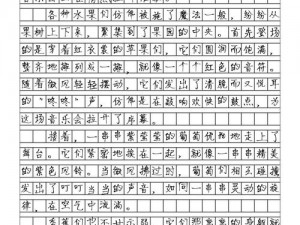 各种水果们仿佛被施了魔法一般,纷纷从
果树上下来,聚集到了果园的中央。首先登场
的是穿着红衣裳的苹果们,它们圆润而饱满,
整齐地排列成一排,就像一个个红色的音符。
随着微风轻轻摆动,它们发出了清脆而又悦耳
的“咚咚”声,仿佛是在敲响欢快的鼓点,为
这场音乐会拉开了序幕。
接着,一串串紫莹莹的葡萄优雅地走上了
舞台。它们紧密地挨在一起,就像一串串精美
的紫色风铃。当微风吹过,葡萄们相互碰撞
发出了叮叮当当的声音,如同一串灵动的旋
律,在空气中流淌。